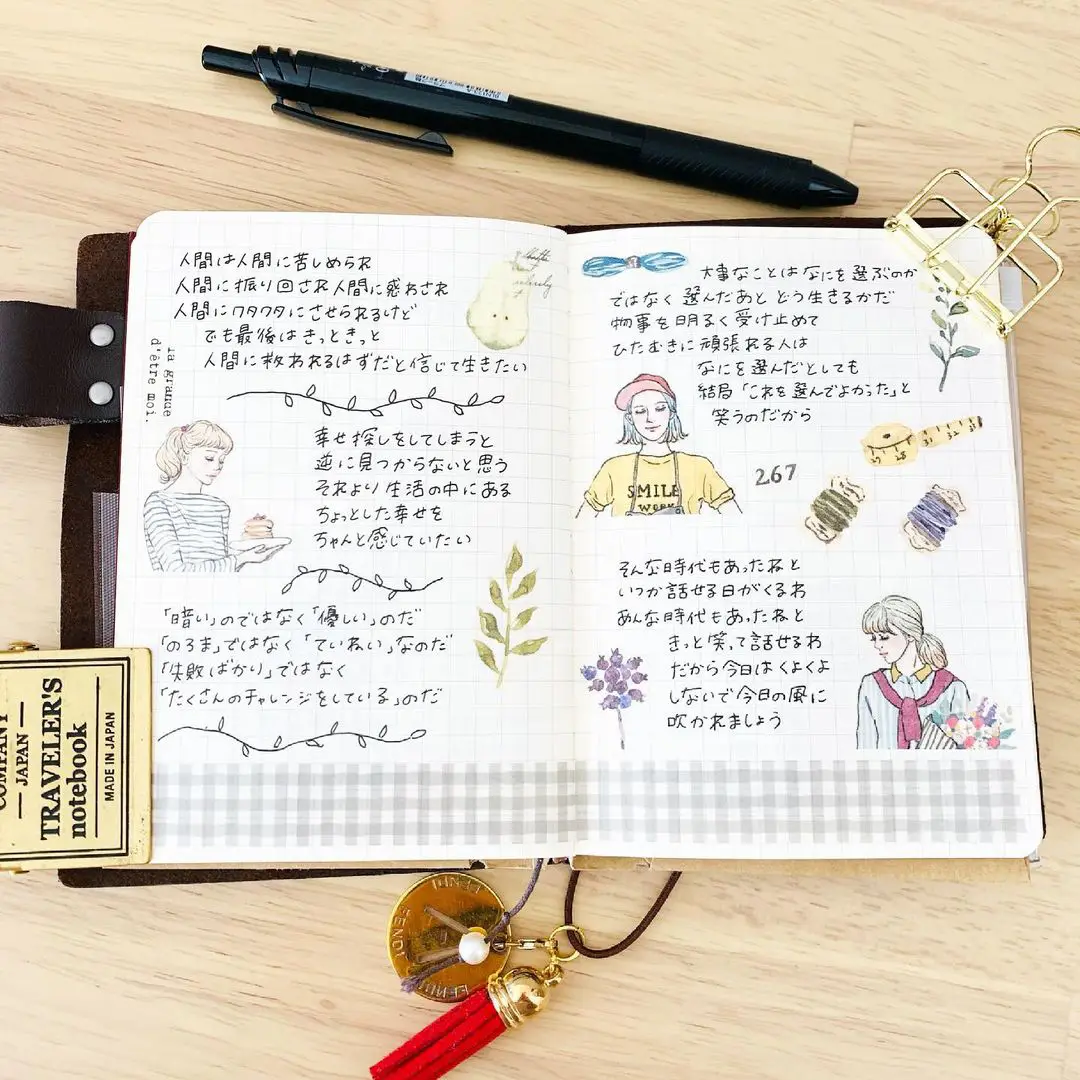 人間は人間に苦しめられ
人間に振り回され人間に惑わされ
人間にワタワタにさせられるけど
でも最後はきっときっと
人間に救われるはずだと信じて生きたい
la grande
d'être moi.
幸せ探しをしてしまうと
逆に見つからないと思う
それより生活の中にある
ちょっとした幸せを
ちゃんと感じていたい
「暗い」のではなく「優しい」のだ
「のろま」ではなく「ていねい」なのだ
「失敗ばかり」ではなく
「たくさんのチャレンジをしている」のだ
大事なことはなにを選ぶのか
ではなく 選んだあと どう生きるかだ
物事を明るく受け止めて
ひたむきに頑張れる人は
なにを選んだとしても
結局「これを選んでよかった」と
笑うのだから
SMILE
WORK
267
31 32 33
27 28
そんな時代もあったねと
いつか話せる日がくるわ
あんな時代もあったねと
きっと笑って話せるわ
だから今日はくよくよ
しないで今日の風に
吹かれましょう
COMPANY
JAPAN
TRAVELER'S
notebook
MADE IN JAPAN
FENDI
FENDI
FENDI